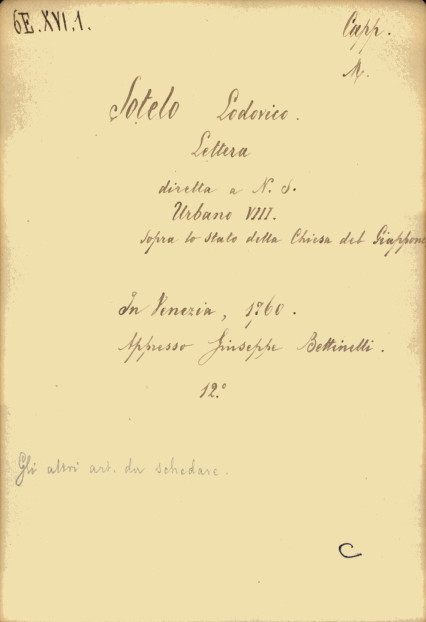 6E.XVI.1.
Capp.
M.
Sotelo Lodovico.
Lettera
diretta a N. S.
Urbano VIII.
sopra lo stato della Chiesa del Giappone
In Venezia, 1760.
Appresso Giuseppe Bettinelli.
12.°
Gli altri art. da schedare.
C